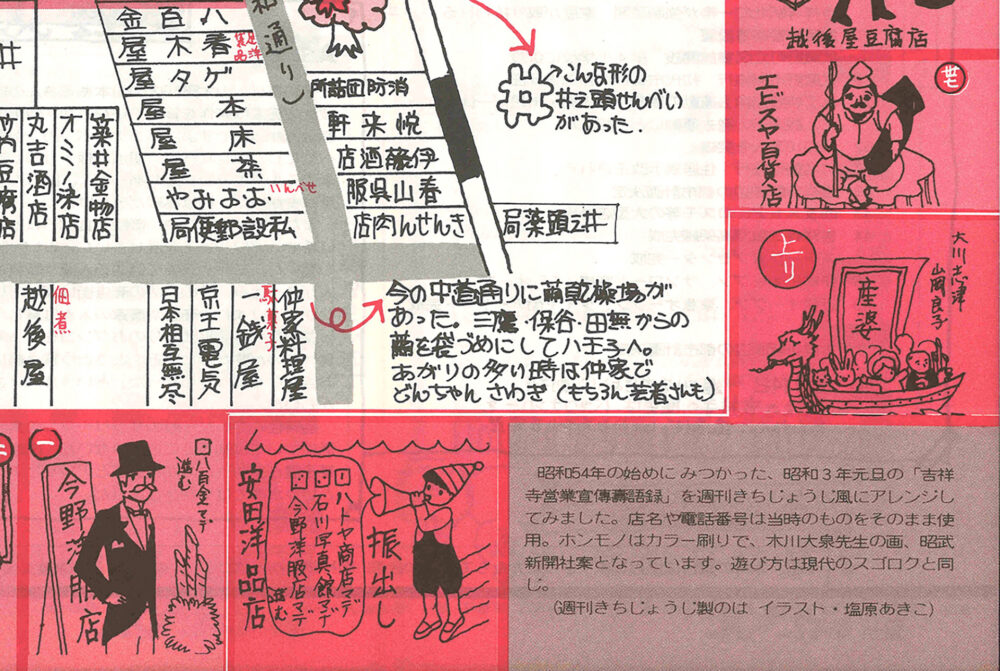 和通り
八百金
春木屋
ゲタ屋
本屋
床屋
茶屋
せんべい
私設郵便局
消防団詰所
悦来軒
伊藤酒店
春山呉服
きんせん肉店
井之頭薬局
築井金物店
オミノ染店
丸吉酒店
豆腐店
こんな形の
井之頭せんべい
があった.
越後屋豆腐店
廿
エビスヤ百貨店
上り
産婆
大川志津
山岡良子
仲家料理屋
駄菓子
一銭屋
京王電気
日本相互無尽
佃煮
越後屋
今の中道通りに繭乾燥場が
あった。三鷹・保谷・田無からの
繭を袋づめにして八王子へ。
あがりの多い時は仲家で
どんちゃんさわぎ(もちろん芸者さんも)
一
八百金マデ
進む
今野洋服店
振出し
ハトヤ商店マデ
石川写真館マデ
今野洋服店マデ
進む
安田洋品店
昭和54年の始めにみつかった、昭和3年元旦の「吉祥
寺営業宣傳壽語録」を週刊きちじょうじ風にアレンジし
てみました。店名や電話番号は当時のものをそのまま使
用。ホンモノはカラー刷りで、木川大泉先生の画、昭武
新聞社案となっています。遊び方は現代のスゴロクと同
じ。
(週刊きちじょうじ製のは イラスト・塩原あきこ)